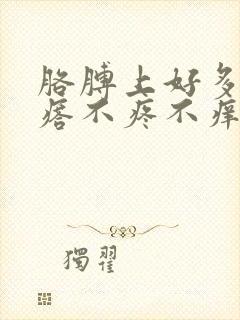 胳膊上好多
痞不疼不痒
獨翟